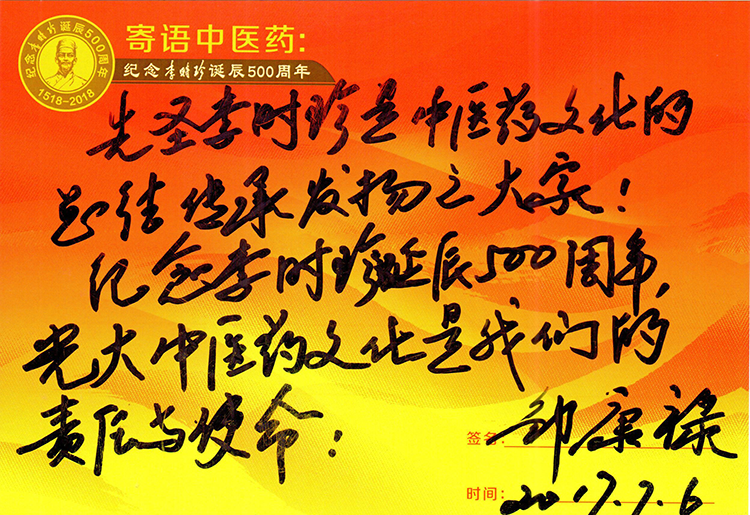 纪念李时珍诞辰500周年
1518-2018
寄语中医药:
纪念李时珍诞辰500周年
先圣李时珍是中医药文化的
总结传承发扬之大家!
纪念李时珍诞辰500周年,
光大中医药文化是我们的
责任与使命:
签名: 康禄
时间: 2017.7.6